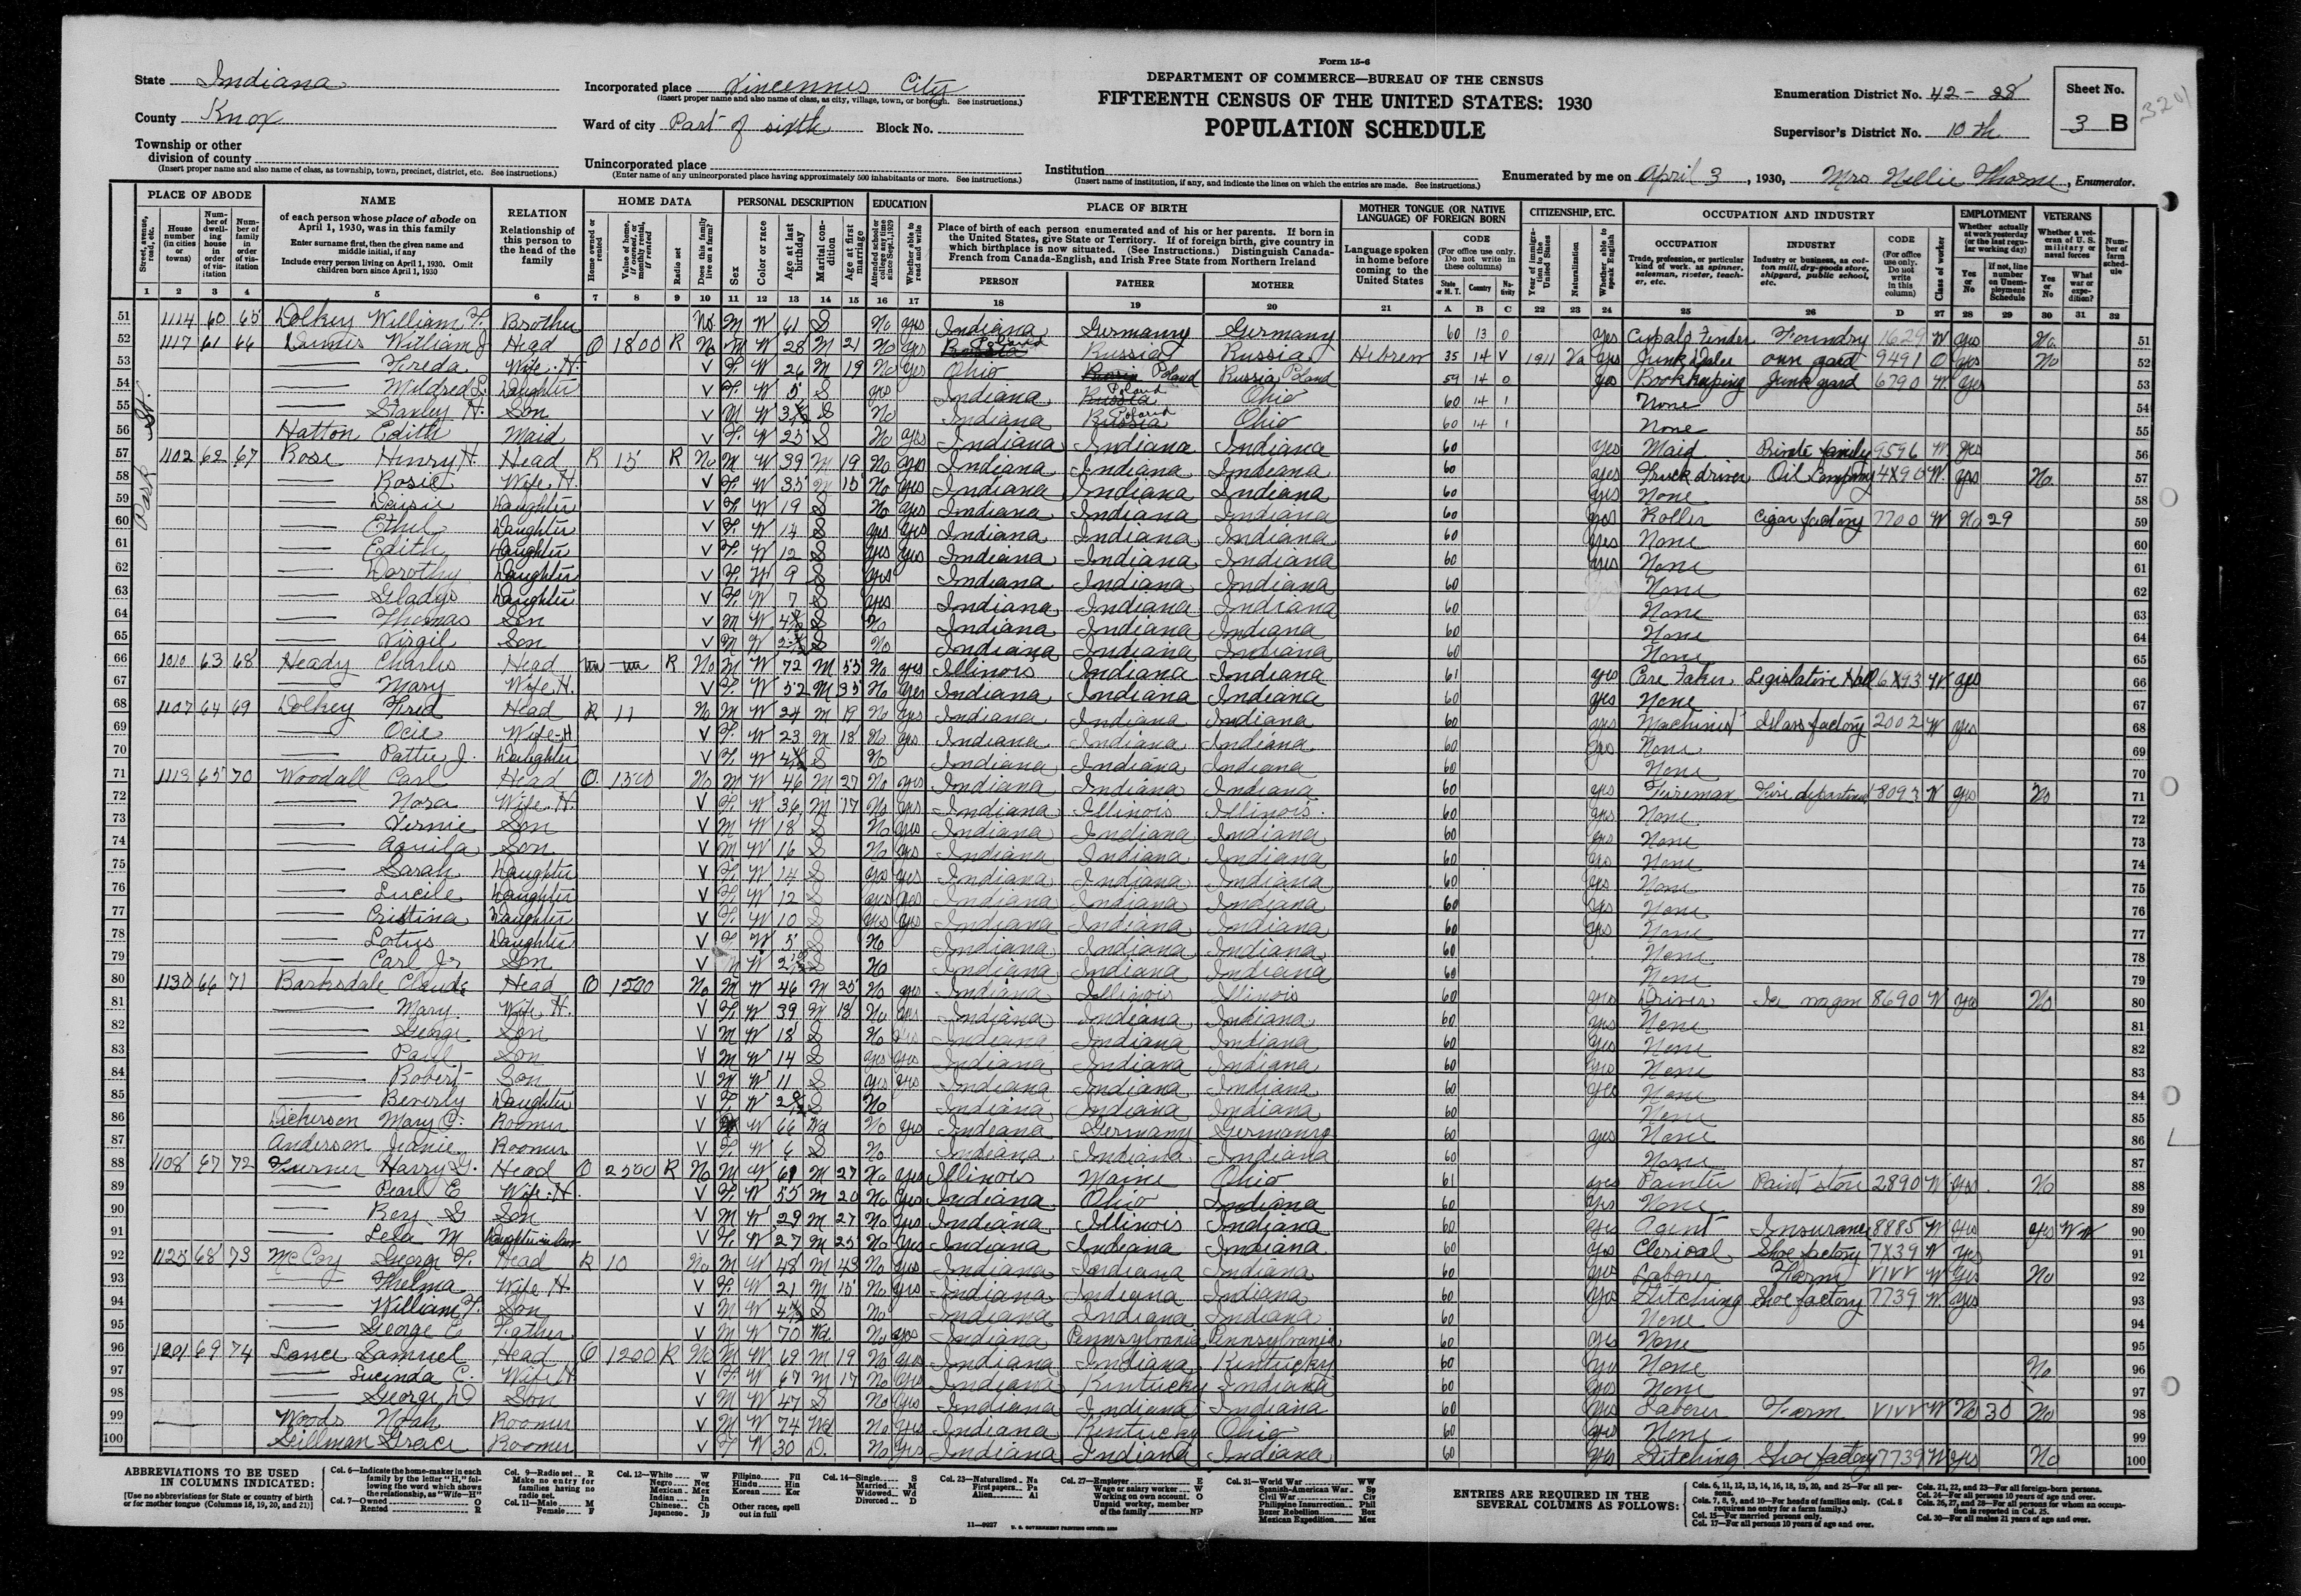 Form 15-6
DEPARTMENT OF COMMERCE—BUREAU OF THE CENSUS
FIFTEENTH CENSUS OF THE UNITED STATES: 1930
POPULATION SCHEDULE
State Indiana
County Knox
Township or other division of county
(Insert proper name and also name of class, as township, town, precinct, district, etc. See instructions.)
Incorporated place Vincennes City
(Insert proper name and also name of class, as city, village, town, or borough. See instructions.)
Ward of city Part of sixth Block No.
Unincorporated place
(Enter name of any unincorporated place having approximately 500 inhabitants or more. See instructions.)
Institution
(Insert name of institution, if any, and indicate the lines on which the entries are made. See instructions.)
Enumeration District No. 42-28
Supervisor's District No. 10th
Sheet No. 3 B
3201
Enumerated by me on April 3, 1930, Mrs Nellie Thorne, Enumerator.
PLACE OF ABODE
NAME
of each person whose place of abode on April 1, 1930, was in this family
Enter surname first, then the given name and middle initial, if any
Include every person living on April 1, 1930. Omit children born since April 1, 1930
RELATION
Relationship of this person to the head of the family
HOME DATA
PERSONAL DESCRIPTION
EDUCATION
PLACE OF BIRTH
Place of birth of each person enumerated and of his or her parents. If born in the United States, give State or Territory. If of foreign birth, give country in which birthplace is now situated. (See Instructions.) Distinguish Canada-French from Canada-English, and Irish Free State from Northern Ireland
PERSON FATHER MOTHER
MOTHER TONGUE (OR NATIVE LANGUAGE) OF FOREIGN BORN
Language spoken in home before coming to the United States
CODE (For office use only. Do not write in these columns)
CITIZENSHIP, ETC.
OCCUPATION AND INDUSTRY
EMPLOYMENT
VETERANS
Park St.
51 1114 60 65 Dolkey William F. Brother No M W 61 S No yes Indiana Germany Germany 60 13 0 yes Cupalo Tender Foundry 1629 W yes No
52 1117 61 66 William J Head O 1800 R No M W 28 M 21 No yes Russia Poland Russia Russia Hebrew 35 14 V 1911 Na yes Junk Dealer own yard 9491 O yes No
53 Freda Wife-H V F W 26 M 19 No yes Ohio Russia Poland Russia Poland 59 14 0 yes Bookkeeping Junk yard 6790 W yes
54 Mildred L Daughter V F W 5 S yes Indiana Russia Poland Ohio 60 14 1 None
55 Stanley H. Son V M W S No Indiana Russia Poland Ohio 60 14 1 None
56 Hatton Edith Maid V F W 25 S No yes Indiana Indiana Indiana 60 yes Maid Private family 9596 W yes
57 1102 62 67 Rose Henry H. Head R 15 R No M W 39 M 19 No yes Indiana Indiana Indiana 60 yes Truck driver Oil Company 4X90 W yes No
58 Rosie Wife-H V F W 35 M 15 No yes Indiana Indiana Indiana 60 yes None
59 Daisie Daughter V F W 19 S No yes Indiana Indiana Indiana 60 yes Roller Cigar factory 7700 W No 29
60 Ethel Daughter V F W 14 S yes yes Indiana Indiana Indiana 60 yes None
61 Edith Daughter V F W 12 S yes yes Indiana Indiana Indiana 60 yes None
62 Dorothy Daughter V F W 9 S yes Indiana Indiana Indiana 60 None
63 Gladys Daughter V F W 7 S yes Indiana Indiana Indiana 60 None
64 Thomas Son V M W S No Indiana Indiana Indiana 60 None
65 Virgil Son V M W S No Indiana Indiana Indiana 60 None
66 1010 63 68 Heady Charles Head R No M W 72 M 55 No yes Illinois Indiana Indiana 61 yes Care Taker Legislative Hall 6X93 W yes
67 Mary Wife-H V F W 52 M 35 No yes Indiana Indiana Indiana 60 yes None
68 1107 64 69 Dolkey Fred Head R 11 No M W 24 M 19 No yes Indiana Indiana Indiana 60 yes Machinist Glass factory 2002 W yes
69 Ocie Wife-H V F W 23 M 18 No yes Indiana Indiana Indiana 60 yes None
70 Pattie J. Daughter V F W S No Indiana Indiana Indiana 60 None
71 1113 65 70 Woodall Carl Head O 1500 No M W 46 M 27 No yes Indiana Indiana Indiana 60 yes Fireman Fire department 8093 W yes No
72 Nora Wife-H V F W 36 M 17 No yes Indiana Illinois Illinois 60 yes None
73 Vernie Son V M W 18 S No yes Indiana Indiana Indiana 60 yes None
74 Aquila Son V M W 16 S No yes Indiana Indiana Indiana 60 yes None
75 Sarah Daughter V F W 14 S yes yes Indiana Indiana Indiana 60 yes None
76 Lucile Daughter V F W 12 S yes yes Indiana Indiana Indiana 60 yes None
77 Cristina Daughter V F W 10 S yes yes Indiana Indiana Indiana 60 yes None
78 Lotus Daughter V F W 5 S No Indiana Indiana Indiana 60 None
79 Carl Jr Son V M W S No Indiana Indiana Indiana 60 None
80 1130 66 71 Barksdale Claude Head O 1500 No M W 46 M 25 No yes Indiana Illinois Illinois 60 yes Driver Ice wagon 8690 W yes No
81 Mary Wife H. V F W 39 M 18 No yes Indiana Indiana Indiana 60 yes None
82 George Son V M W 18 S No yes Indiana Indiana Indiana 60 yes None
83 Paul Son V M W 14 S yes yes Indiana Indiana Indiana 60 yes None
84 Robert Son V M W 11 S yes yes Indiana Indiana Indiana 60 yes None
85 Beverly Daughter V F W S No Indiana Indiana Indiana 60 None
86 Dickerson Mary C. Roomer V W 66 Wd No yes Indiana Germany Germany 60 yes None
87 Anderson Roomer V F W 6 S No Indiana Indiana Indiana 60 None
88 1108 67 72 Turner Harry G. Head O 2500 R No M W 61 M 27 No yes Illinois Maine Ohio 61 yes Painter Paint store 2890 W yes No
89 Pearl E Wife-H. V F W 55 M 20 No yes Indiana Ohio Indiana 60 yes None
90 G Son V M W 29 M 27 No yes Indiana Illinois Indiana 60 yes Agent Insurance 8885 W yes yes WW
91 Lela M Daughter in law V F W 27 M 25 No yes Indiana Indiana Indiana 60 yes Clerical Shoe factory 7X39 W yes
92 1125 68 73 McCoy George F. Head R 10 No M W 48 M 43 No yes Indiana Indiana Indiana 60 yes Laborer Farm VIVV W yes No
93 Thelma Wife H. V F W 21 M 15 No yes Indiana Indiana Indiana 60 yes Stitching Shoe factory 7739 W yes
94 William F. Son V M W S No Indiana Indiana Indiana 60 None
95 George C Father V M W 70 Wd No yes Indiana Pennsylvania Pennsylvania 60 yes None
96 1201 69 74 Lance Samuel Head O 1200 R No M W 69 M 19 No yes Indiana Indiana Kentucky 60 yes None No
97 Lucinda C. Wife H V F W 67 M 17 No yes Indiana Kentucky Indiana 60 yes None
98 George D Son V M W 47 S No yes Indiana Indiana Indiana 60 yes Laborer Farm VIVV W No 30 No
99 Woods Noah Roomer V M W 74 Wd No yes Indiana Kentucky Ohio 60 yes None
100 Grace Roomer V F W 30 D. No yes Indiana Indiana Indiana 60 yes Stitching Shoe factory 7739 W yes No
ABBREVIATIONS TO BE USED IN COLUMNS INDICATED:
[Use no abbreviations for State or country of birth or for mother tongue (Columns 18, 19, 20, and 21)]
Col. 6—Indicate the home-maker in each family by the letter "H," following the word which shows the relationship, as "Wife—H"
Col. 7—Owned O Rented R
Col. 9—Radio set R Make no entry for families having no radio set.
Col. 11—Male M Female F
Col. 12—White W Negro Neg Mexican Mex Indian In Chinese Ch Japanese Jp Filipino Fil Hindu Hin Korean Kor Other races, spell out in full
Col. 14—Single S Married M Widowed Wd Divorced D
Col. 23—Naturalized Na First papers Pa Alien Al
Col. 27—Employer E Wage or salary worker W Working on own account O Unpaid worker, member of the family NP
Col. 31—World War WW Spanish-American War Sp Civil War Civ Philippine Insurrection Phil Boxer Rebellion Box Mexican Expedition Mex
ENTRIES ARE REQUIRED IN THE SEVERAL COLUMNS AS FOLLOWS:
Cols. 6, 11, 12, 13, 14, 16, 18, 19, 20, and 25—For all persons.
Cols. 7, 8, 9, and 10—For heads of families only. (Col. 8 requires no entry for a farm family.)
Col. 15—For married persons only.
Col. 17—For all persons 10 years of age and over.
Cols. 21, 22, and 23—For all foreign-born persons.
Col. 24—For all persons 10 years of age and over.
Cols. 26, 27, and 28—For all persons for whom an occupation is reported in Col. 25.
Col. 30—For all males 21 years of age and over.
11—9927 U. S. GOVERNMENT PRINTING OFFICE: 1930